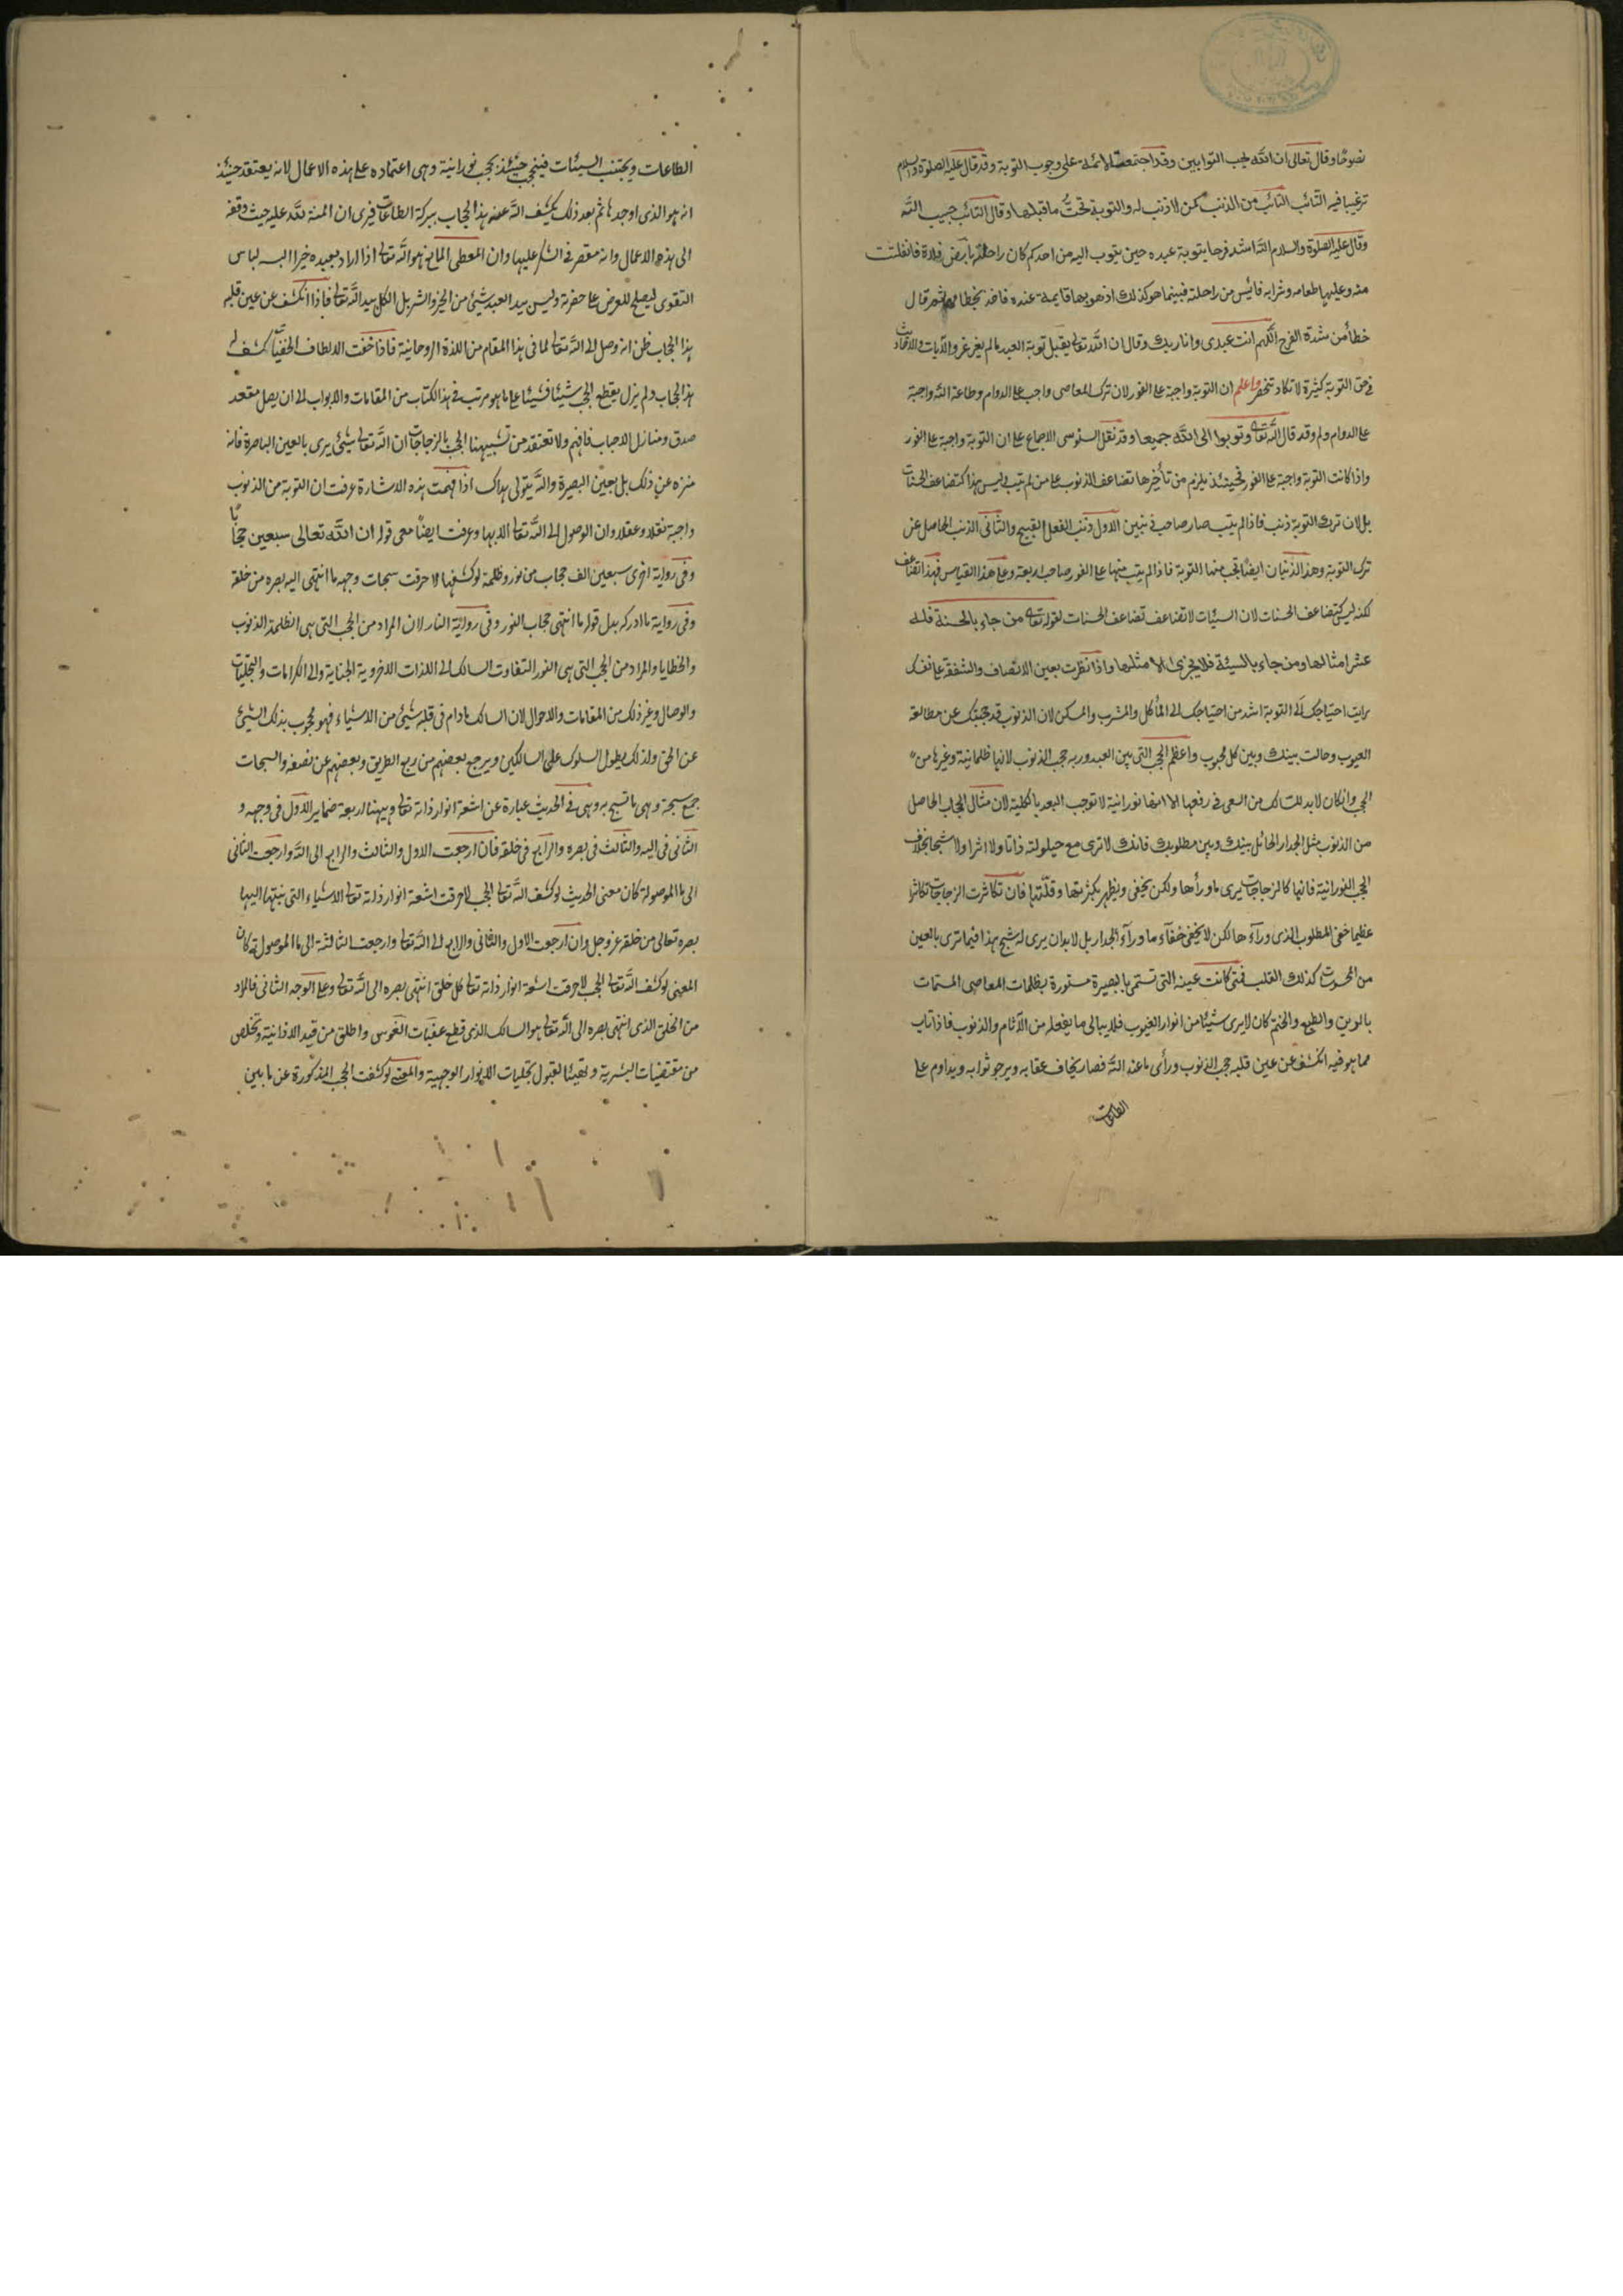 نصوحا وقال تعالى ان الله يحب التوابين وقد اجتمعت الائمة على وجوب التوبة وقد قال عليه الصلوة والسلام
ترغيبا فيه التائب التائب من الذنب كمن لا ذنب له والتوبة تحت ما قبلها وقال التائب حبيب الله
وقال عليه الصلوة والسلام الله اشد فرحا بتوبة عبده حين يتوب اليه من احدكم كان راحلته بارض فلاة فانفلتت
منه وعليها طعامه وشرابه فايس من راحلته فبينما هو كذلك اذ هو بها قايمة عنده فاخذ بخطامها ثم قال
خطأ من شدة الفرح اللهم انت عبدى وانا ربك وقال ان الله تعالى يقبل توبة العبد مالم يغرغر والآيات والاحاديث
فى حق التوبة كثيرة لا تكاد تنحصر واعلم ان التوبة واجبة على الفور لان ترك المعاصى واجب على الدوام وطاعة الله واجبة
على الدوام ولم وقد قال الله تعالى وتوبوا الى الله جميعا وقد نقل السنوسى الاجماع على ان التوبة واجبة على الفور
واذا كانت التوبة واجبة على الفور فحينئذ يلزم من تأخيرها تضاعف الذنوب على من لم يتب ليس هذا كتضاعف الحسنات
بل لان ترك التوبة ذنب فاذا لم يتب صار صاحب ذنبين الاول ذنب الفعل القبيح والثانى الذنب الحاصل عن
ترك التوبة وهذ الذنبان ايضا تجب منهما التوبة فاذا لم يتب منهما على الفور صاحب اربعة وعلى هذا القياس فهذا تضاعف
لكنه ليس كتضاعف الحسنات لان السيئات لا تضاعف تضاعف الحسنات لقوله تعالى من جاء بالحسنة فله
عشر امثالها ومن جاء بالسيئة فلا يجزى الا مثلها واذا نظرت بعين الانصاف والشفقة على نفسك
رايت احتياجك الى التوبة اشد من احتياجك الى المأكل والمشرب والمسكن لان الذنوب قد حجبتك عن مطالعة
العيوب وحالت بينك وبين كل محبوب واعظم الحجب التى بين العبد وربه حجب الذنوب لانها ظلمانية وغيرها من
الحجب وان كان لابد للسالك من السعى فى رفعها الا انها نورانية لا توجب البعد بالكلية لان مثال الحجاب الحاصل
من الذنوب مثل الجدار الحائل بينك وبين مطلوبك فانك لا ترى مع حيلولته ذاتا ولا اثرا ولا شبحا بخلاف
الحجب النورانية فانها كالزجاجات يرى ما ورأها ولكن يخفى ويظهر بكثرتها وقلتها فان تكاثرت الزجاجات تكاثرا
عظيما خفى المطلوب الذى ورآءها لكن لا يخفى خفآء ما ورآء الجدار بل لابد ان يرى له شبح هذا فيما ترى بالعين
من المحسوسات كذلك القلب فمتى كانت عينه التى تسمى بالبصيرة مستورة بظلمات المعاصى المسمات
بالرين والطبع والختم كان لا يرى شيئا من انوار الغيوب فلا يبالى ما يفعله من الآثام والذنوب فاذا تاب
مما هو فيه انكشف عن عين قلبه حجب الذنوب ورأى ما عند الله فصار يخاف عقابه ويرجو ثوابه ويداوم على
الطاعات
الطاعات ويجتنب السيئات فيحجب حينئذ بحجب نورانية وهى اعتماده على هذه الاعمال لانه يعتقد حينئذ
انه هو الذى اوجدها ثم بعد ذلك يكشف الله عنه هذا الحجاب ببركة الطاعات فيرى ان المنة لله عليه حيث وفقه
الى هذه الاعمال وانه مقصر فى الشكر عليها وان المعطى المانع هو الله تعالى اذا اراد بعبده خيرا البسه لباس
التقوى ليصلح للعرض على حضرته وليس بيد العبد شيئ من الخير والشر بل الكل بيد الله تعالى فاذا انكشف عن عين قلبه
هذا الحجاب ظن انه وصل الى الله تعالى لما فى هذا المقام من اللذة الروحانية فاذا حفت الالطاف الخفيات كشف له
هذا الحجاب ولم يزل يقطع الحجب شيئا فشيئا على ما هو مرتب فى هذا الكتاب من المقامات والابواب الى ان يصل مقعد
صدق ومنازل الاحباب فافهم ولا تعتقد من تشبيهنا الحجب بالزجاجات ان الله تعالى شيئ يرى بالعين الباصرة فانه
منزه عن ذلك بل بعين البصيرة والله يتولى هداك اذا فهمت هذه الاشارة عرفت ان التوبة من الذنوب
واجبة نقلا وعقلا وان الوصول الى الله تعالى الا بها وعرفت ايضا معى قوله ان لله تعالى سبعين حجابا
وفى رواية اخرى سبعين الف حجاب من نور وظلمة لو كشفها لاحرقت سبحات وجهه ما انتهى اليه بصره من خلقه
وفى رواية ما ادركه بدل قوله ما انتهى حجاب النور وفى رواية النار لان المراد من الحجب التى هى الظلمة الذنوب
والخطايا والمراد من الحجب التى هى النور التفاوت السالك الى اللذات الاخروية الجناية والى الكرامات والتجليات
والوصال وغير ذلك من المقامات والاحوال لان السالك مادام فى قلبه شيئ من الاشياء فهو محجوب بذلك الشيئ
عن الحق ولذلك يطول السلوك على السالكين ويرجع بعضهم من ربع الطريق وبعضهم عن نصفه والسبحات
جمع سبحة وهى ما تسبح به وهى فى الحديث عبارة عن اشعة انوار ذاته تعالى وههنا اربعة ضماير الاول فى وجهه و
الثانى فى اليه والثالث فى بصره والرابع فى خلقه فان ارجعت الاول والثالث والرابع الى الله وارجعت الثانى
الى ما الموصولة كان معنى الحديث لو كشف الله تعالى الحجب لاحرقت اشعة انوار ذاته تعالى الاشياء التى ينتهى اليها
بصره تعالى من خلقه عز وجل وان ارجعت الاول والثانى والرابع الى الله تعالى وارجعت الثالثة الى ما الموصولة كان
المعنى لو كشف الله تعالى الحجب لاحرقت اشعة انوار ذاته تعالى كل خلق انتهى بصره الى الله تعالى وعلى الوجه الثانى فالمراد
من الخلق الذى انتهى بصره الى الله تعالى هو السالك الذى قطع عقبات النفوس واطلق من قيد الانانية وتخلص
من مقتضيات البشرية وتهيئا لقبول تجليات الانوار الوجهية والمعنى لو كشفت الحجب المذكورة عن ما بين